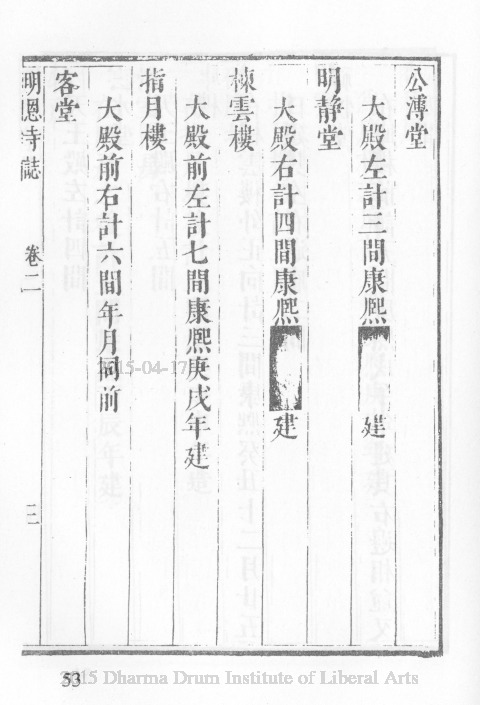 公溥堂
大殿左計三間康熈 建
明靜堂
大殿右計四間康熈 建
棟雲樓
大殿前左計七間康熈庚戌年建
指月樓
大殿前右計六間年月同前
客堂
明恩寺誌 卷二 三
2015-04-17
53
2015 Dharma Drum Institute of Liberal Arts